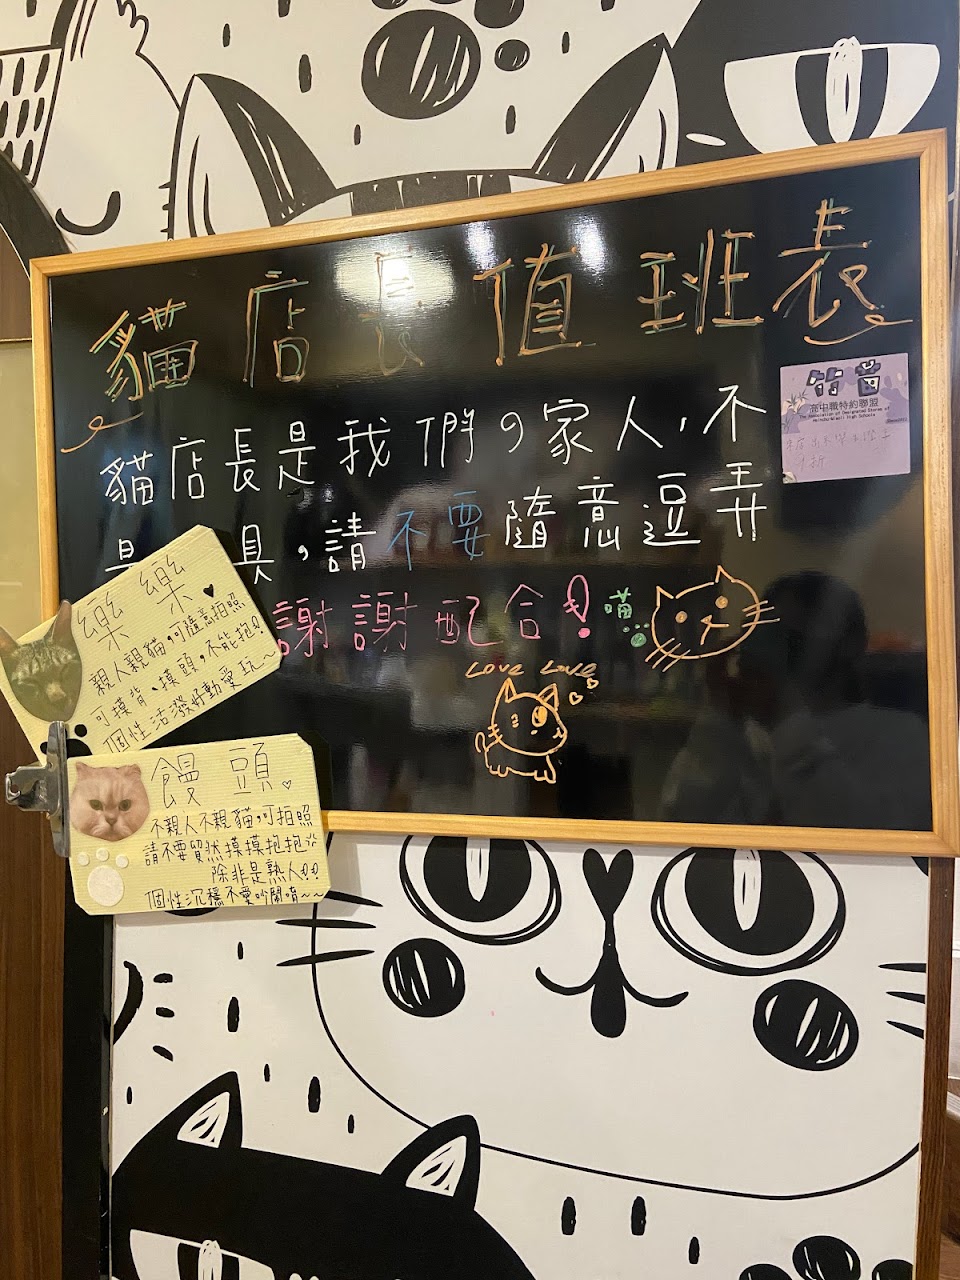 貓店長值班表
貓店長是我們の家人,不
是 具,請不要隨意逗弄
謝謝配合!喵
Love Love
竹苗
高中職特約聯盟
The Association of Designated Stores of
樂樂
親人親貓,可隨意拍照
可摸背、摸頭,不能抱!
個性活潑好動愛玩~
饅頭
不親人不親貓,可拍照
請不要貿然摸摸抱抱
除非是熟人!!
個性沉穩不愛吵鬧唷~~